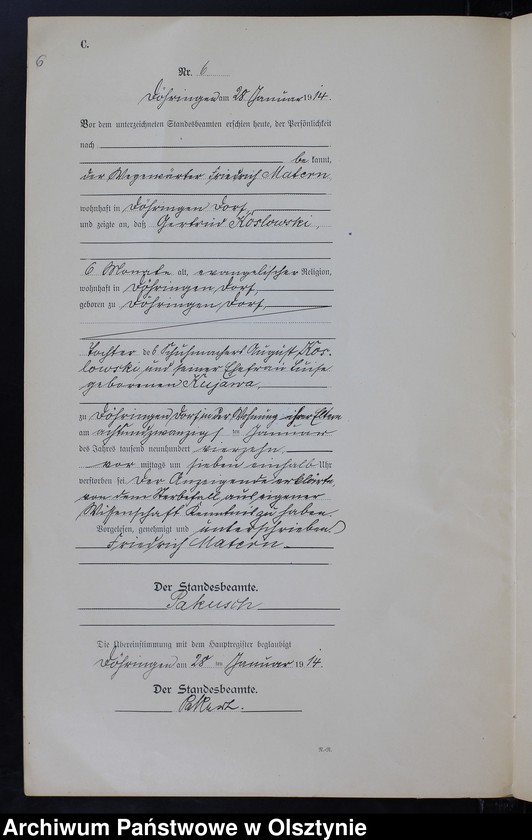 6
C.
Nr. 6
Döhringen am 28 Januar 1914.
Vor dem unterzeichneten Standesbeamten erschien heute, der Persönlichkeit
nach
be kannt,
der Wegewärter Friedrich Matern
wohnhaft in Döhringen Dorf,
und zeigte an, daß Gertrud Koslowski,
6 Monate alt, evangelischer Religion,
wohnhaft in Döhringen, Dorf,
geboren zu Döhringen Dorf,
Tochter des Schuhmachers August Kos-
lowski und seiner Ehefrau Luise
geborenen Kujawa,
zu Döhringen Dorf in der Wohnung ihrer Eltern
am achtundzwanzigsten Januar
des Jahres tausend neunhundert vierzehn,
vor mittags um sieben einhalb Uhr
verstorben sei. Der Anzeigende erklärte,
von dem Sterbefall aus eigener
Wissenschaft Kenntnis zu haben.
Vorgelesen, genehmigt und unterschrieben.
Friedrich Matern
Der Standesbeamte.
Pakusch
Die Übereinstimmung mit dem Hauptregister beglaubigt
Döhringen am 28 ten Januar 1914.
Der Standesbeamte.
Archiwum Państwowe w Olsztynie